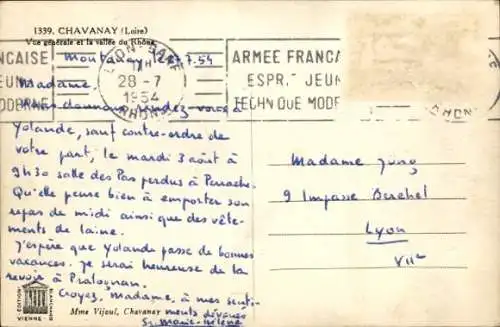 1339. CHAVANAY (Loire)
Vue générale et la vallée du Rhône
27.7.54
LYON-GARE
28-7
1954
RHONE
ÇAISE
JEUN
MODERNE
ARMEE FRANÇA
ESPR. JEUN
TECHNIQUE MODE
RHONE
Madame,
Nous donnons rendez-vous à
Yolande, sauf contre-ordre de
votre part, le mardi 3 août à
9h30 salle des Pas perdus à Perrache.
Qu'elle pense bien à emporter son
repas de midi ainsi que des vête-
ments de laine.
J'espère que Yolande passe de bonnes
vacances. Je serai heureuse de la
revoir à Pralognan.
Croyez, Madame, à mes senti-
ments dévoués
Sr Marie-Hélène
Madame Jung
9 Impasse Berchet
Lyon
VIIe
EDITION
BLANCHARD
VIENNE
Mme Vijoul, Chavanay